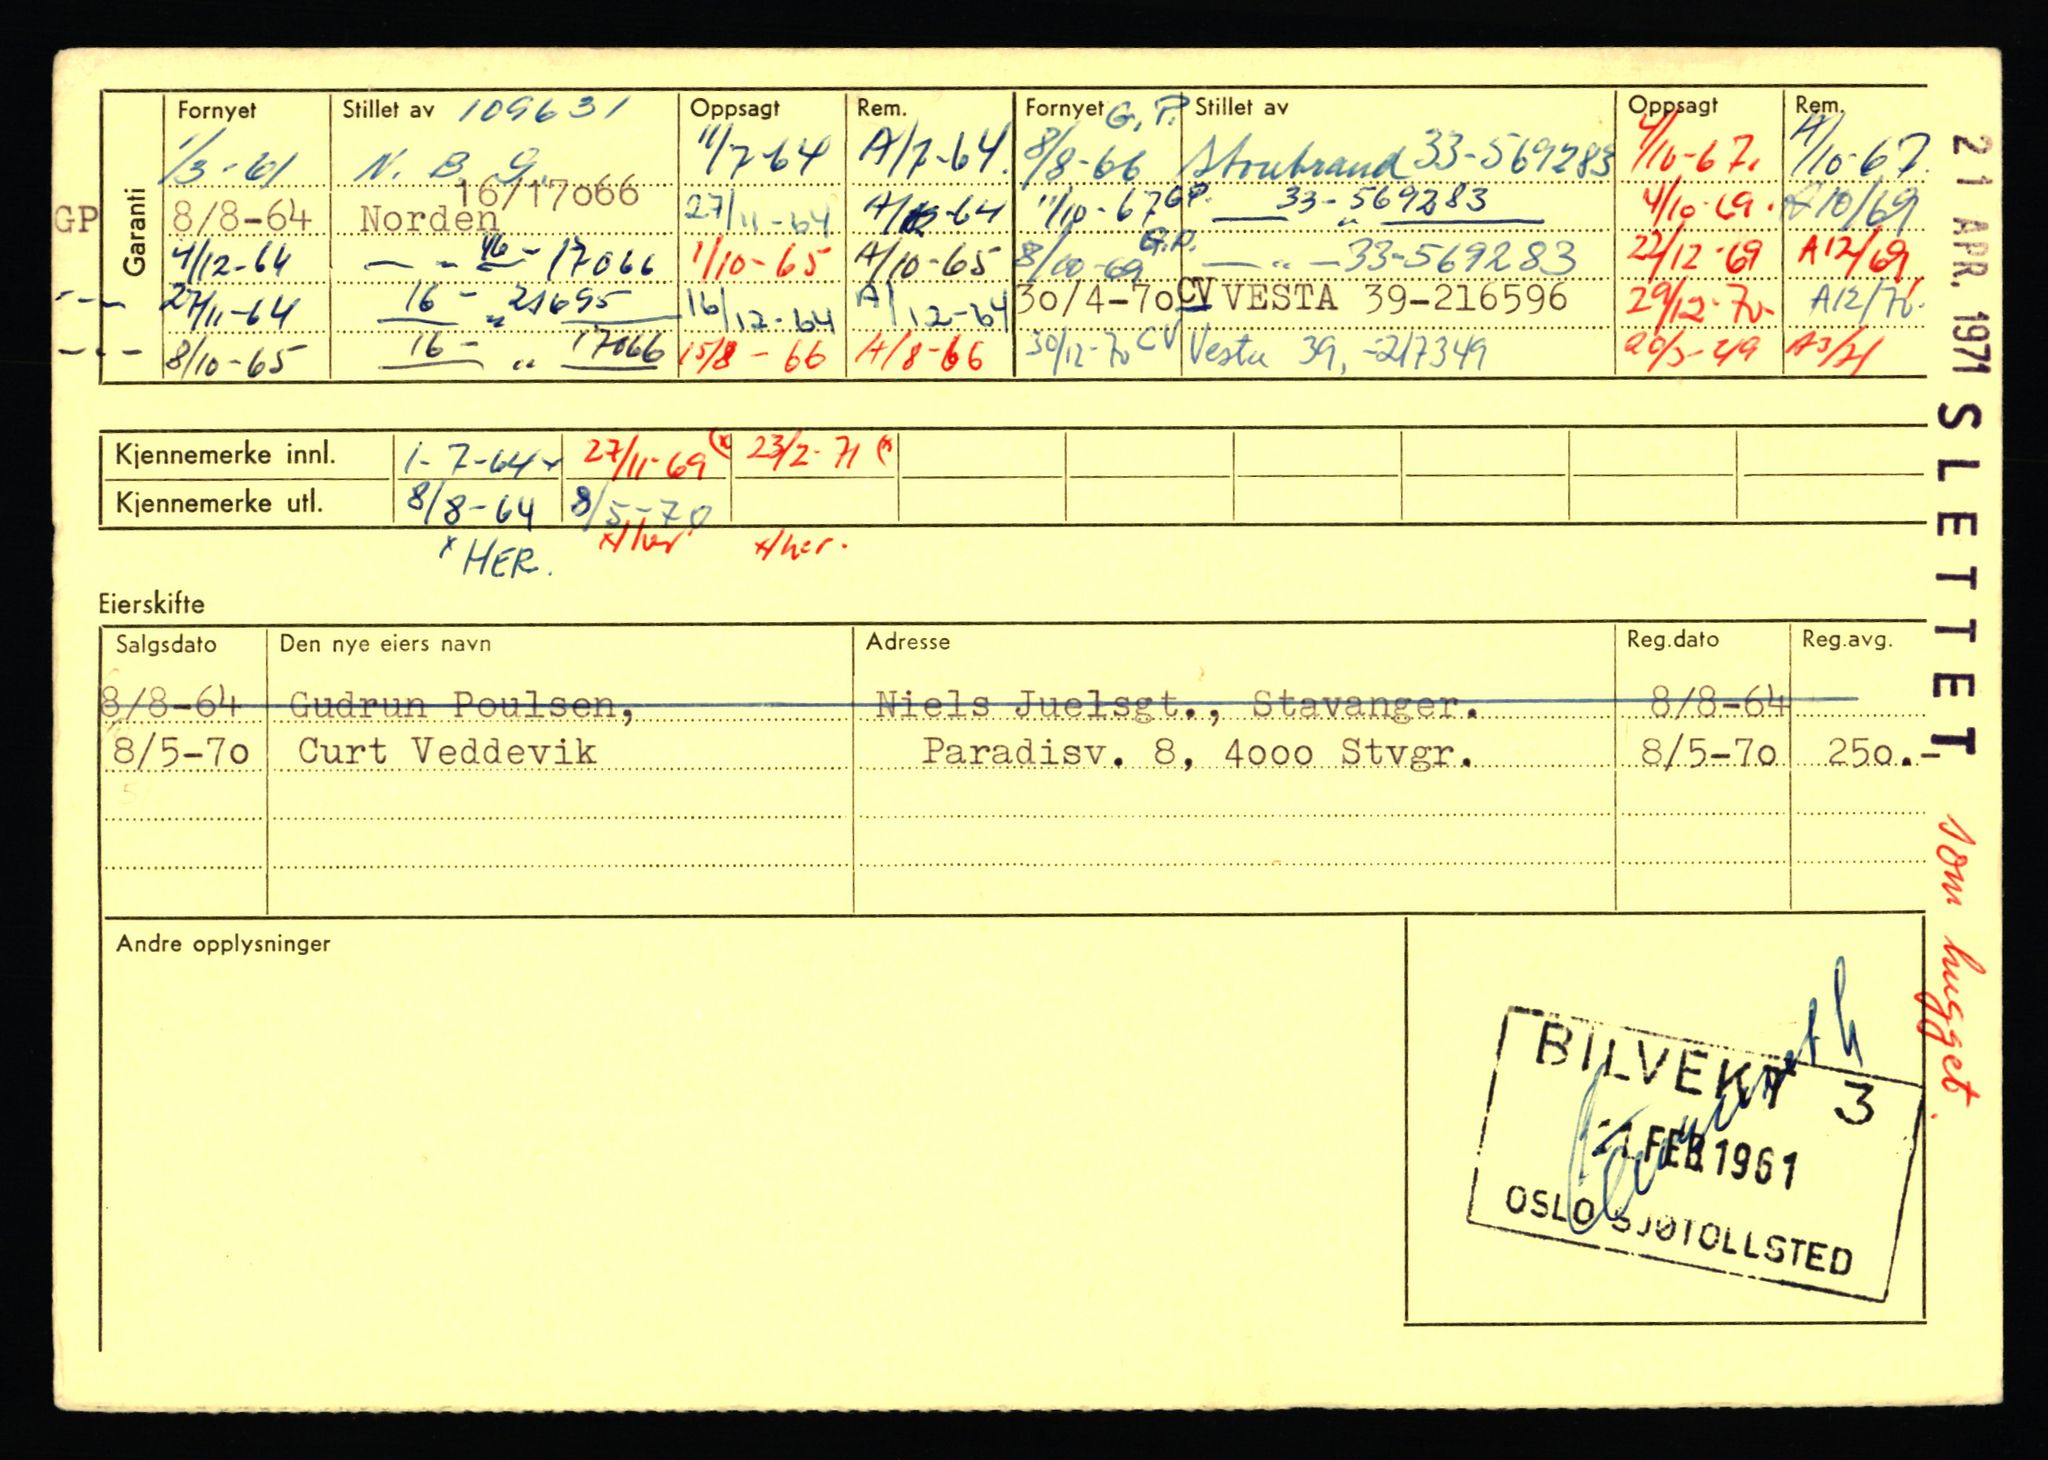 Garanti
Fornyet Stillet av 109631 Oppsagt Rem. Fornyet G.P. Stillet av Oppsagt Rem.
1/3-61 N. B. G. 11/7-64 A/7-64. 8/8-66 Storebrand 33-569283 4/10-67. A/10-67.
GP 8/8-64 Norden 16/17066 27/11-64 A/12-64 11/10-67 GP. — 33-569283 — 4/10-69. A10/69
4/12-64 — " — 16 - 17066 1/10-65 A/10-65 8/10-69 G.P. — " — 33-569283 22/12-69 A12/69
— " — 27/11-64 16 - " 21695 16/12-64 A/12-64 30/4-70 CV VESTA 39-216596 29/12-70 A12/70.
— " — 8/10-65 16 - " 17066 15/8-66 A/8-66 30/12-70 CV Vesta 39,-217349 A3/71
Kjennemerke innl. 1-7-64 x 27/11-69 (x 23/2-71 (x
Kjennemerke utl. 8/8-64 8/5-70
x HER. x/her x/her.
Eierskifte
Salgsdato Den nye eiers navn Adresse Reg.dato Reg.avg.
8/8-64 Gudrun Poulsen, Niels Juelsgt., Stavanger. 8/8-64
8/5-70 Curt Veddevik Paradisv. 8, 4000 Stvgr. 8/5-70 250.-
Andre opplysninger
BILVEKT 3
FEB 1961
OSLO SJØTOLLSTED
21 APR. 1971 SLETTET som hugget.